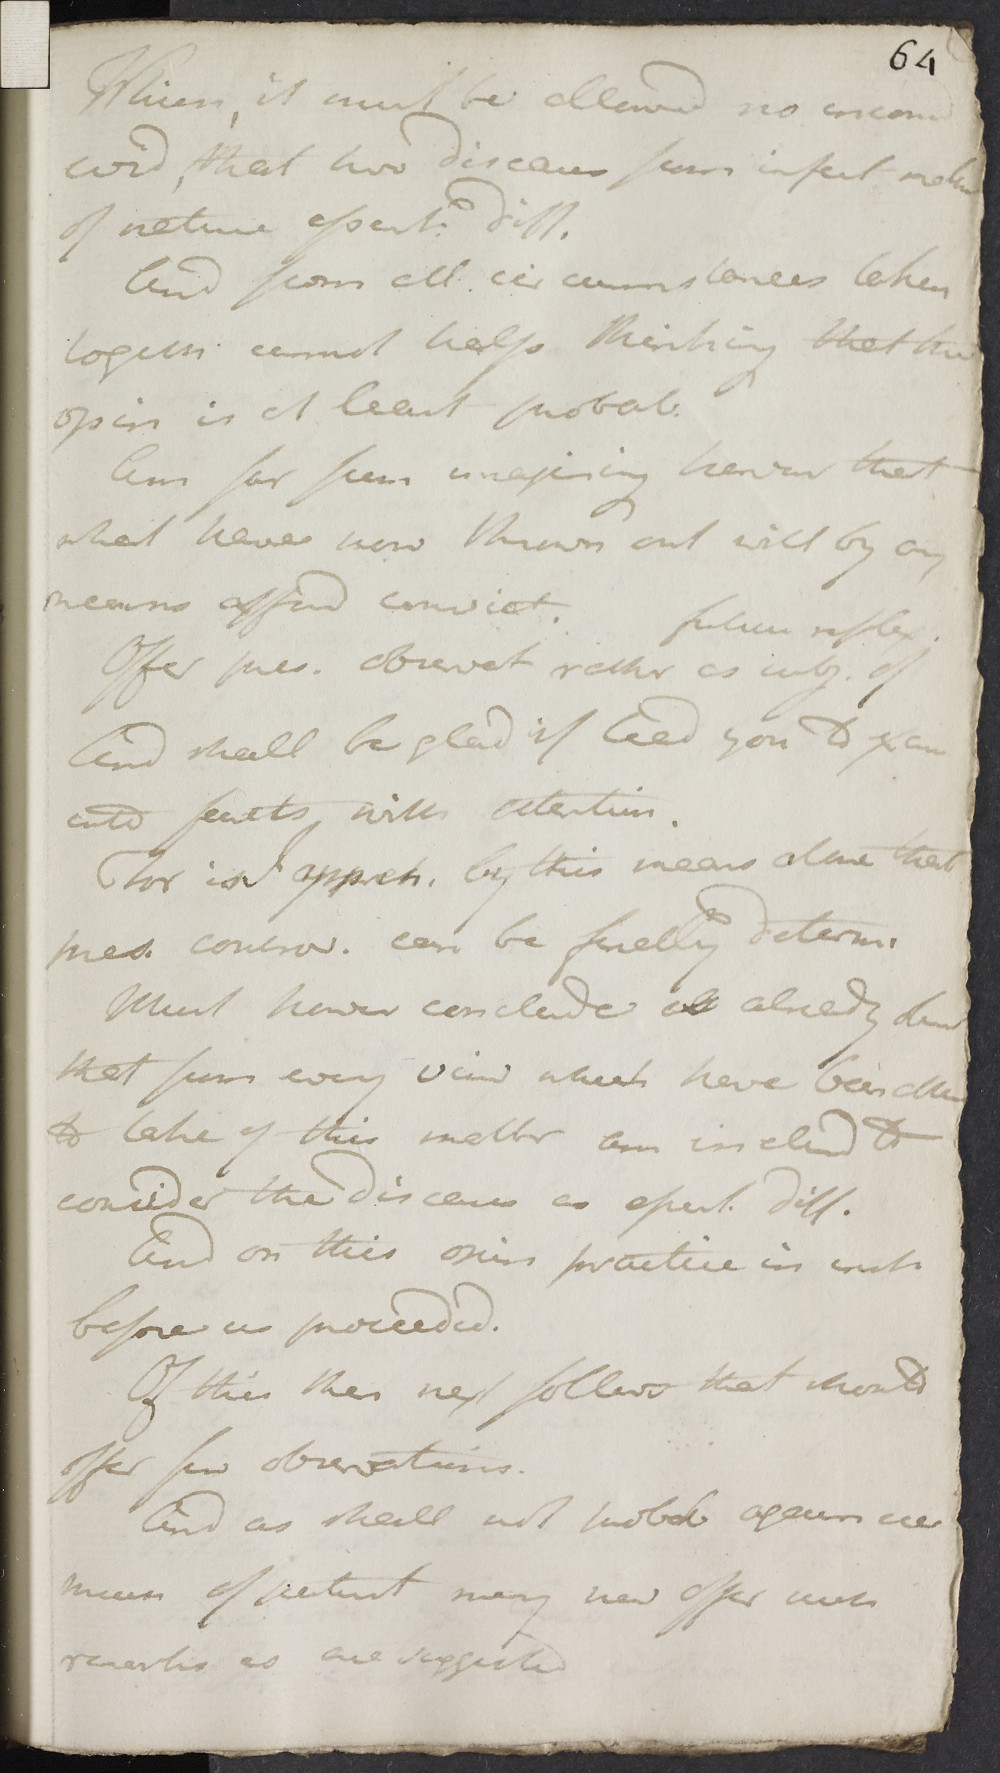 64
When, it must be allowed no incon
cvid, that two diseases from infect matter
of nature essent. diff.
And from all circumstances taken
togethr cannot help thinking that this
opin is at least probab.
Am far from imagining howevr that
what have now thrown out will by any
means afford convict.
future reflex.
Offer pres. observat rathr as subj. of
And shall be glad if lead you to exam
into facts with attention.
For is appreh. by this means alone that
pres. controv. can be finally determ.
Must howevr conclude as already done
that from every view which have been able
to take of this mattr am inclind to
consider the diseases as essent. diff.
And on this opin practice in inst.
before us proceeded.
Of this then next follows that should
offer few observations.
And as shall not probab again see
mean of patient may now offer such
remarks as are suggested